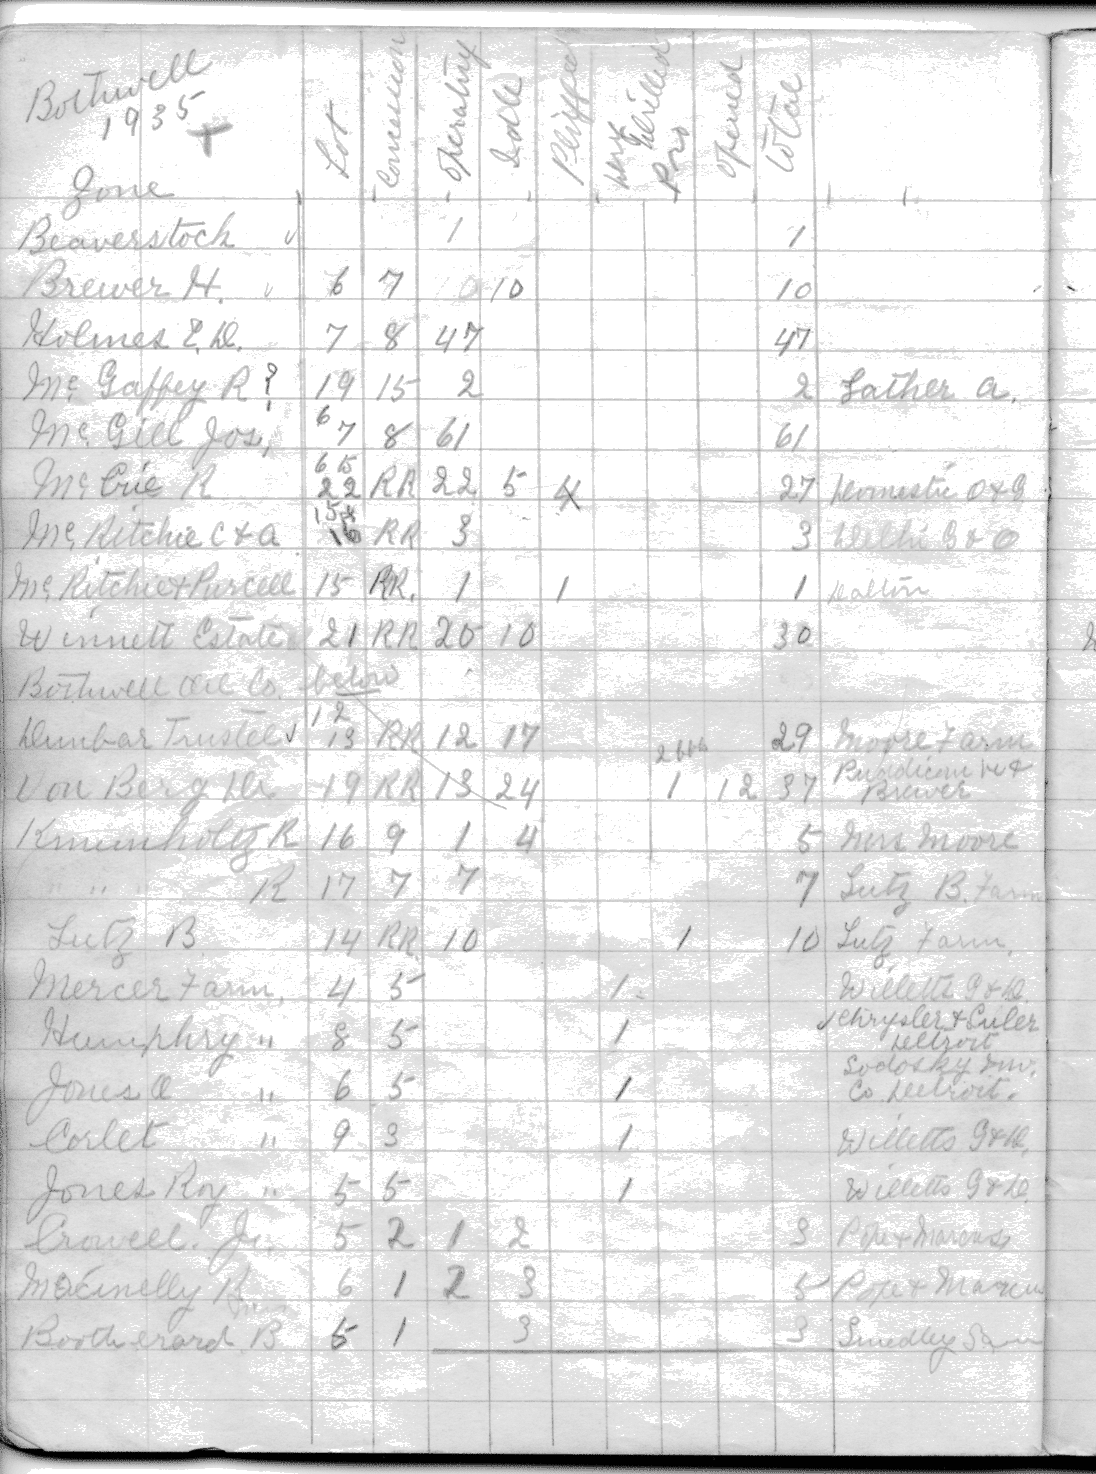 Bothwell
1935
Zone
Lot Concession Operating Idle Plugged New Drilled Prod Opened Total
Beaverstock ✓ 1 1
Brewer H. ✓ 6 7 10 10
Holmes E. D. 7 8 47 47
Mc Gaffey R ? 19 15 2 2 Lather A.
6
Mc Gill Jos, 7 8 61 61
6 15
Mc Crie R 22 RR 22 5 4 27 Domestic O & G
Mc Ritchie C & A 16 RR 3 3 G & O
Mc Ritchie & Purcell 15 RR. 1 1 1 Dalton
Winnett Estate 21 RR 20 10 30
Bothwell Oil Co. below
12
Dunbar Trustee ✓ 13 RR 12 17 29 Moore Farm
Von Berg Dr. 19 RR 13 24 1 12 37 Brewer
R 16 9 1 4 5 Mrs Moore
" " " R 17 7 7 7 Lutz B. Farm
Lutz B 14 RR 10 1 10 Lutz Farm.
Mercer Farm. 4 5 1 Willetts G & D.
✓ Chrysler & Culer
Humphry " 8 5 1 Detroit
Sodosky Inv.
Jones O " 6 5 1 Co. Detroit.
Corlet " 9 3 1 Willetts G & D.
Jones Roy " 5 5 1 Willetts G & D.
Crowell. Jr. 5 2 1 2 3 Pope & Marcus
R 6 1 2 3 5 Pope & Marcus
B 5 1 3 3 Smedley